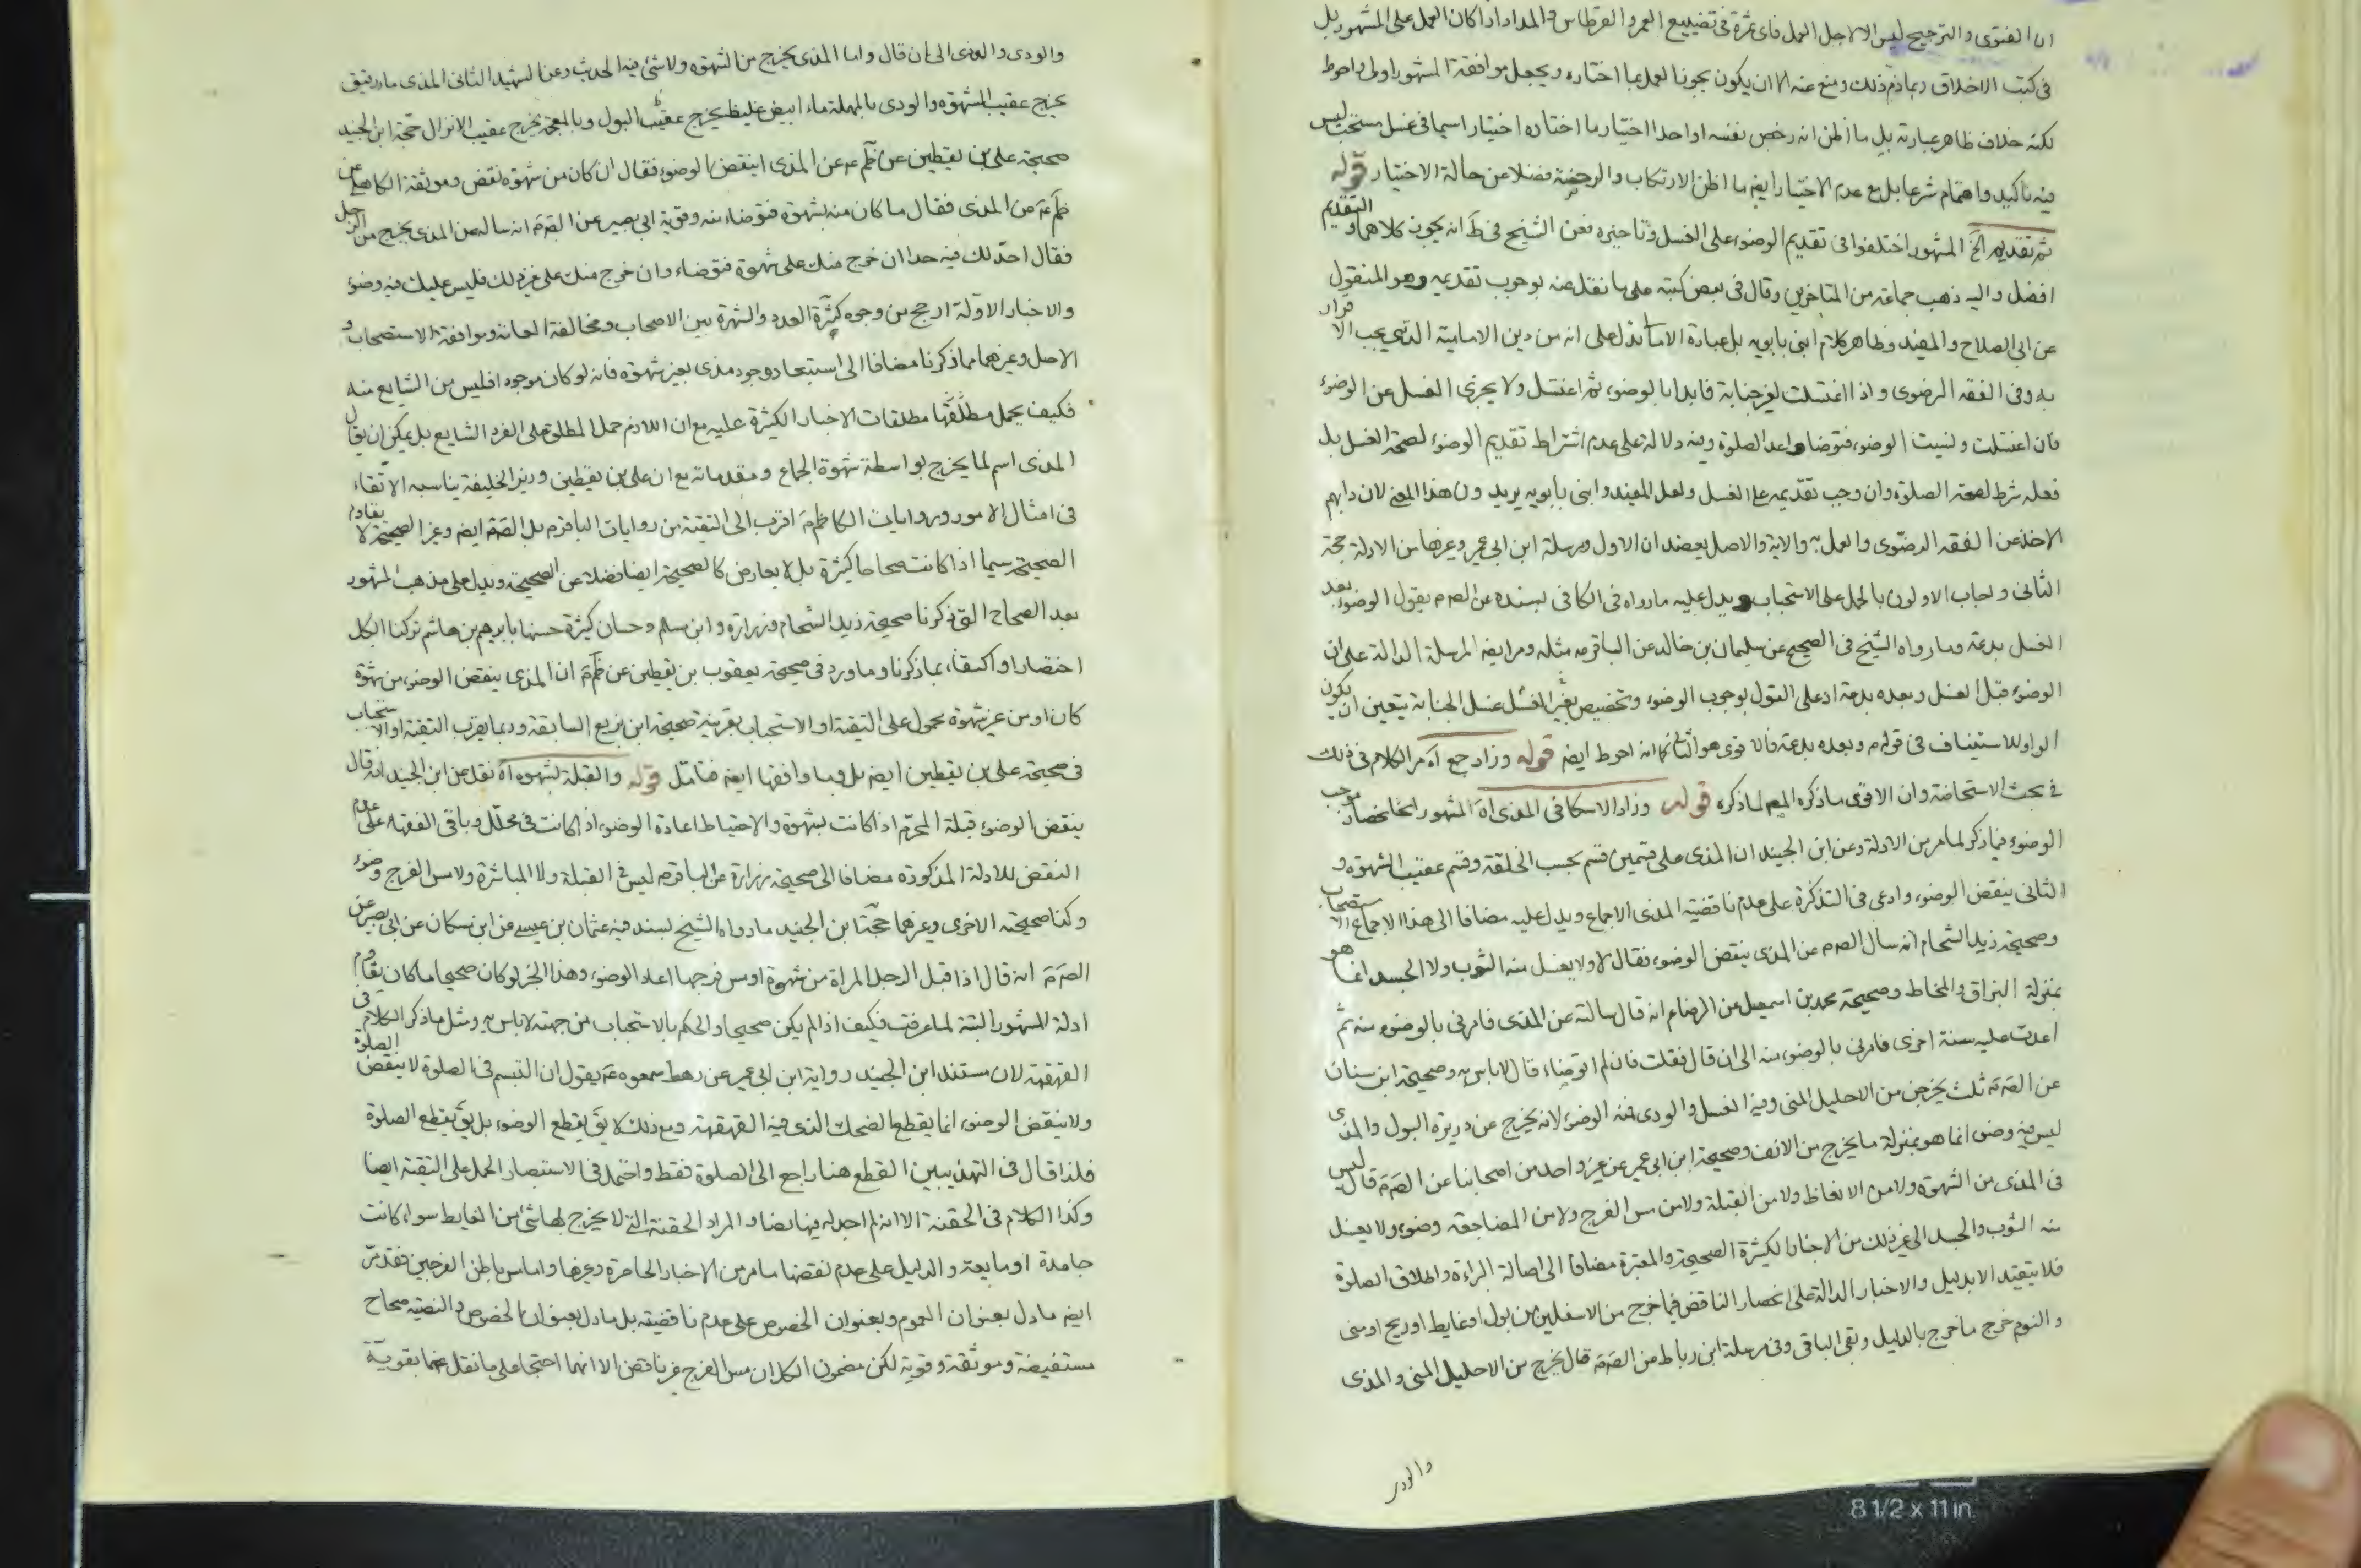 ان الفتوى والترجيح ليس الا لاجل العمل فاى ثمرة فى تضييع العمر والقرطاس والمداد اذا كان العمل على المشهور بل
فى كتب الاخلاق ربما ذم ذلك ومنع عنه الا ان يكون يجوز العمل بما اختاره ويجعل موافقة المشهور اولى واحوط
لكنه خلاف ظاهر عبارته بل ما اظن انه رخص نفسه او احدا اختيار ما اختاره اختيار اسيما فى غسل مستحب ليس
فيه تاكيد واهتمام شرعا بل مع عدم الاختيار ايضا ما اظن الارتكاب والرخصة فضلا عن حالة الاختيار قوله
ثم تقديم الخ المشهور اختلفوا فى تقديم الوضوء على الغسل وتاخيره فعن الشيخ فى ط انه يجوز كلاهما والتقديم
افضل واليه ذهب جماعة من المتاخرين وقال فى بعض كتبه على ما نقل عنه بوجوب تقديمه وهو المنقول
عن ابى الصلاح والمفيد وظاهر كلام ابنى بابويه بل عبارة الامالى تدل على انه من دين الامامية الذى يجب الاقرار
به وفى الفقه الرضوى واذا اغتسلت لغير جنابة فابدا بالوضوء ثم اغتسل ولا يجزى الغسل عن الوضوء
فان اغتسلت ونسيت الوضوء فتوضا واعد الصلوة وفيه دلالة على عدم اشتراط تقديم الوضوء لصحة الغسل بل
فعله شرط لصحة الصلوة وان وجب تقديمه على الغسل ولعل المفيد وابنى بابويه يريدون هذا المعنى لان دابهم
الاخذ عن الفقه الرضوى والعمل به والاية والاصل يعضدان الاول ومرسلة ابن ابى عمير وغيرها من الادلة حجة
الثانى واجاب الاولون بالحمل على الاستحباب ويدل عليه ما رواه فى الكافى بسنده عن الصم يقول الوضوء بعد
الغسل بدعة وما رواه الشيخ فى الصحيح عن سليمان بن خالد عن الباقر ع مثله ومر ايضا المرسلة الدالة على ان
الوضوء قبل الغسل وبعده بدعة اذ على القول بوجوب الوضوء وتخصيص بغير الغسل غسل الجنابة يتعين ان يكون
الواو للاستيناف فى قوله م وبعده بدعة فالاقوى هو الثانى كما انه احوط ايضا قوله وزاد جمع اه مر الكلام فى ذلك
فى بحث الاستحاضة وان الاقوى ما ذكره المصم لما ذكره قوله وزاد الاسكافى المذى اه المشهور انحصار موجب
الوضوء فيما ذكر لما مر من الادلة وعن ابن الجنيد ان المذى على قسمين قسم بحسب الخلقة وقسم عقيب الشهوة و
الثانى ينقض الوضوء وادعى فى التذكرة على عدم ناقضية المذى الاجماع ويدل عليه مضافا الى هذا الاجماع الاستصحاب
وصحيحة زيد الشحام انه سال الصم عن المذى ينقض الوضوء فقال لا ولا يغسل منه الثوب ولا الجسد انما هو
بمنزلة البزاق والمخاط وصحيحة محمد بن اسمعيل عن الرضا ع انه قال سالته عن المذى فامرنى بالوضوء منه ثم
اعدت عليه سنة اخرى فامرنى بالوضوء منه الى ان قال فقلت فان لم اتوضاء قال لا باس به وصحيحة ابن سنان
عن الصم ثلث يخرجن من الاحليل المنى وفيه الغسل والودى فمنه الوضوء لانه يخرج عن دريرة البول والمذى
ليس فيه وضوء انما هو بمنزلة ما يخرج من الانف وصحيحة ابن ابى عمير عن غير واحد من اصحابنا عن الصم قال ليس
فى المذى من الشهوة ولا من الانعاظ ولا من القبلة ولا من مس الفرج ولا من المضاجعة وضوء ولا يغسل
منه الثوب والجسد الى غير ذلك من الاخبار الكثيرة الصحيحة والمعتبرة مضافا الى اصالة البراءة واطلاق الصلوة
فلا يتقيد الا بدليل والاخبار الدالة على انحصار الناقض فيما خرج من الاسفلين من بول او غايط او ريح او منى
والنوم خرج ما خرج بالدليل وبقى الباقى وفى مرسلة ابن رباط عن الصم قال يخرج من الاحليل المنى والمذى
والودى
والودى والوذى الى ان قال واما المذى يخرج من الشهوة ولا شئ فيه الحديث وعن الشهيد الثانى المذى ماء رقيق
يخرج عقيب الشهوة والودى بالمهملة ماء ابيض غليظ يخرج عقيب البول وبالمعجمة يخرج عقيب الانزال حجة ابن الجنيد
صحيحة على بن يقطين عن ظم ع عن المذى اينقض الوضوء فقال ان كان من شهوة نقض وموثقة الكاهلى عن
ظم ع عن المذى فقال ما كان منه بشهوة فتوضاء منه وقوية ابى بصير عن الصم انه ساله عن المذى يخرج من الرجل
فقال احد لك فيه حدا ان خرج منك على شهوة فتوضاء وان خرج منك على غير ذلك فليس عليك فيه وضوء
والاخبار الاولة ارجح من وجوه كثرة العدد والشهرة بين الاصحاب ومخالفة العامة وموافقة الاستصحاب و
الاصل وغيرهما مما ذكرنا مضافا الى استبعاد وجود مذى بغير شهوة فانه لو كان موجودا فليس من الشايع منه
فكيف يحمل مطلقها مطلقات الاخبار الكثيرة عليه مع ان اللازم حمل المطلق على الفرد الشايع بل يمكن ان يقال
المذى اسم لما يخرج بواسطة شهوة الجماع ومقدماته مع ان على بن يقطين وزير الخليفة يناسبه الاتقاء
فى امثال الامور وروايات الكاظم م اقرب الى التقية من روايات الباقر م بل الصم ايضا وغير الصحيحة لا يقاوم
الصحيحة سيما اذا كانت صحاحا كثيرة بل لا يعارض كالصحيحة ايضا فضلا عن الصحيحة ويدل على مذهب المشهور
بعد الصحاح التى ذكرنا صحيحة زيد الشحام وزرارة وابن مسلم وحسان كثيرة حسنها بابرهيم بن هاشم تركنا الكل
اختصارا واكتفاء بما ذكرنا وما ورد فى صحيحة يعقوب بن يقطين عن ظم م ان المذى ينقض الوضوء من شهوة
كان او من غير شهوة محمول على التقية او الاستحباب بقرينة صحيحة ابن بزيع السابقة وربما يقرب التقية او الاستحباب
فى صحيحة على بن يقطين ايضا بل وما وافقها ايضا فتامل قوله والقبلة لشهوة اه نقل عن ابن الجنيد انه قال
ينقض الوضوء قبلة المحرم اذا كانت بشهوة والاحتياط اعادة الوضوء اذا كانت فى محلل وباقى الفقهاء على عدم
النقض للادلة المذكورة مضافا الى صحيحة زرارة عن الباقر م ليس فى القبلة ولا المباشرة ولا مس الفرج وضوء
وكذا صحيحته الاخرى وغيرهما حجة ابن الجنيد ما رواه الشيخ بسند فيه عثمان بن عيسى عن ابن مسكان عن ابى بصير عن
الصم انه قال اذا قبل الرجل المراة من شهوة او مس فرجها اعاد الوضوء وهذا الخبر لو كان صحيحا ما كان يقاوم
ادلة المشهور البتة لما عرفت فكيف اذا لم يكن صحيحا والحكم بالاستحباب من جهته لا باس به ومثل ما ذكر الكلام فى
القهقهة لان مستند ابن الجنيد رواية ابن ابى عمير عن رهط سمعوه ع يقول ان التبسم فى الصلوة لا ينقض الصلوة
ولا ينقض الوضوء انما يقطع الضحك الذى فيه القهقهة ومع ذلك لا يق يقطع الوضوء بل يق يقطع الصلوة
فلذا قال فى التهذيبين القطع هنا راجع الى الصلوة فقط واحتمل فى الاستبصار الحمل على التقية ايضا
وكذا الكلام فى الحقنة الا انه لم اجد له فيها نصا والمراد الحقنة التى لا يخرج لها شئ من الغايط سواء كانت
جامدة او مايعة والدليل على عدم نقضها ما مر من الاخبار الحاصرة وغيرها واما مس باطن الفرجين فقد مر
ايضا ما دل بعنوان العموم وبعنوان الخصوص على عدم ناقضيته بل ما دل بعنوان الخصوص والنصية صحاح
مستفيضة وموثقة وقوية لكن مضمون الكل ان مس الفرج غير ناقض الا انهما احتجا على ما نقل عنهما بقوية